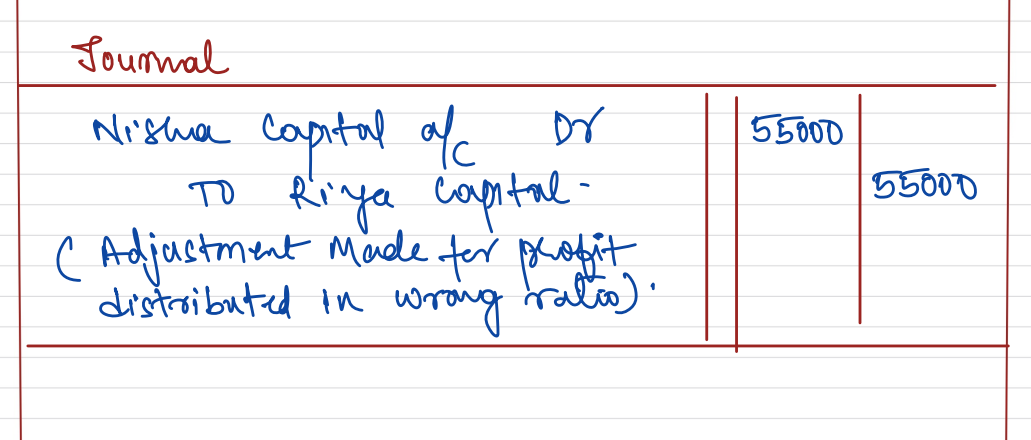 Journal
Nisha Capital a/c Dr 55000
To Riya Capital - 55000
( Adjustment Made for profit
distributed in wrong ratio).